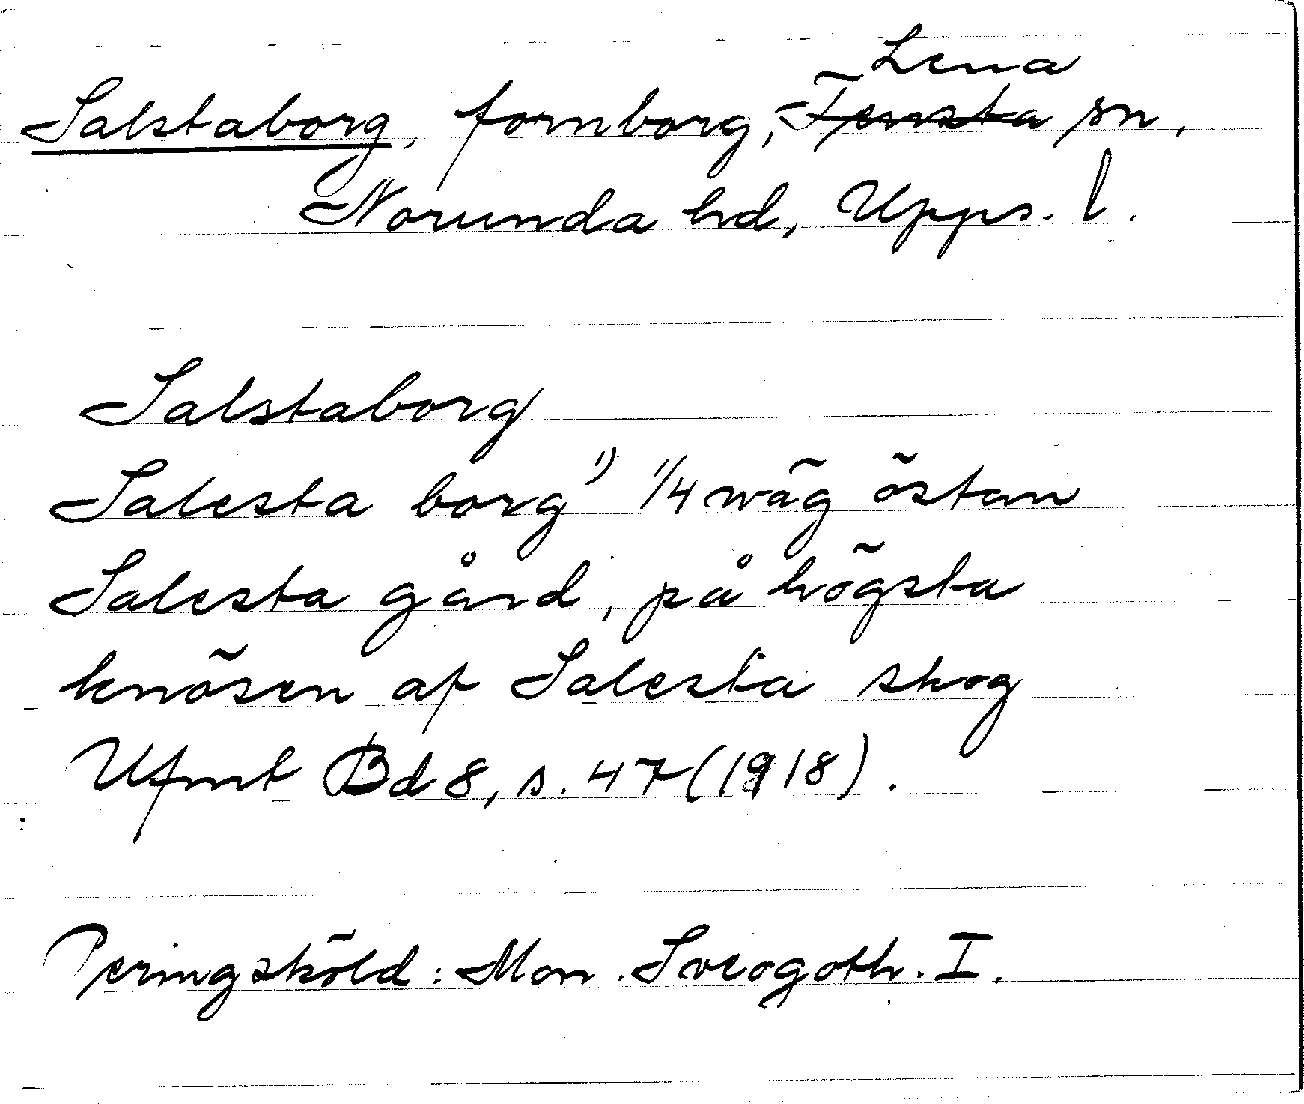 Lena
Salstaborg, fornborg, Tensta sn,
Norunda hd, Upps. l.
Salstaborg
Salesta borg 1) 1/4 wäg östan
Salesta gård, på högsta
knösen af Salesta skog
Ufmt Bd 8, s. 47 (1918).
Peringsköld: Mon. Sveogoth. I.